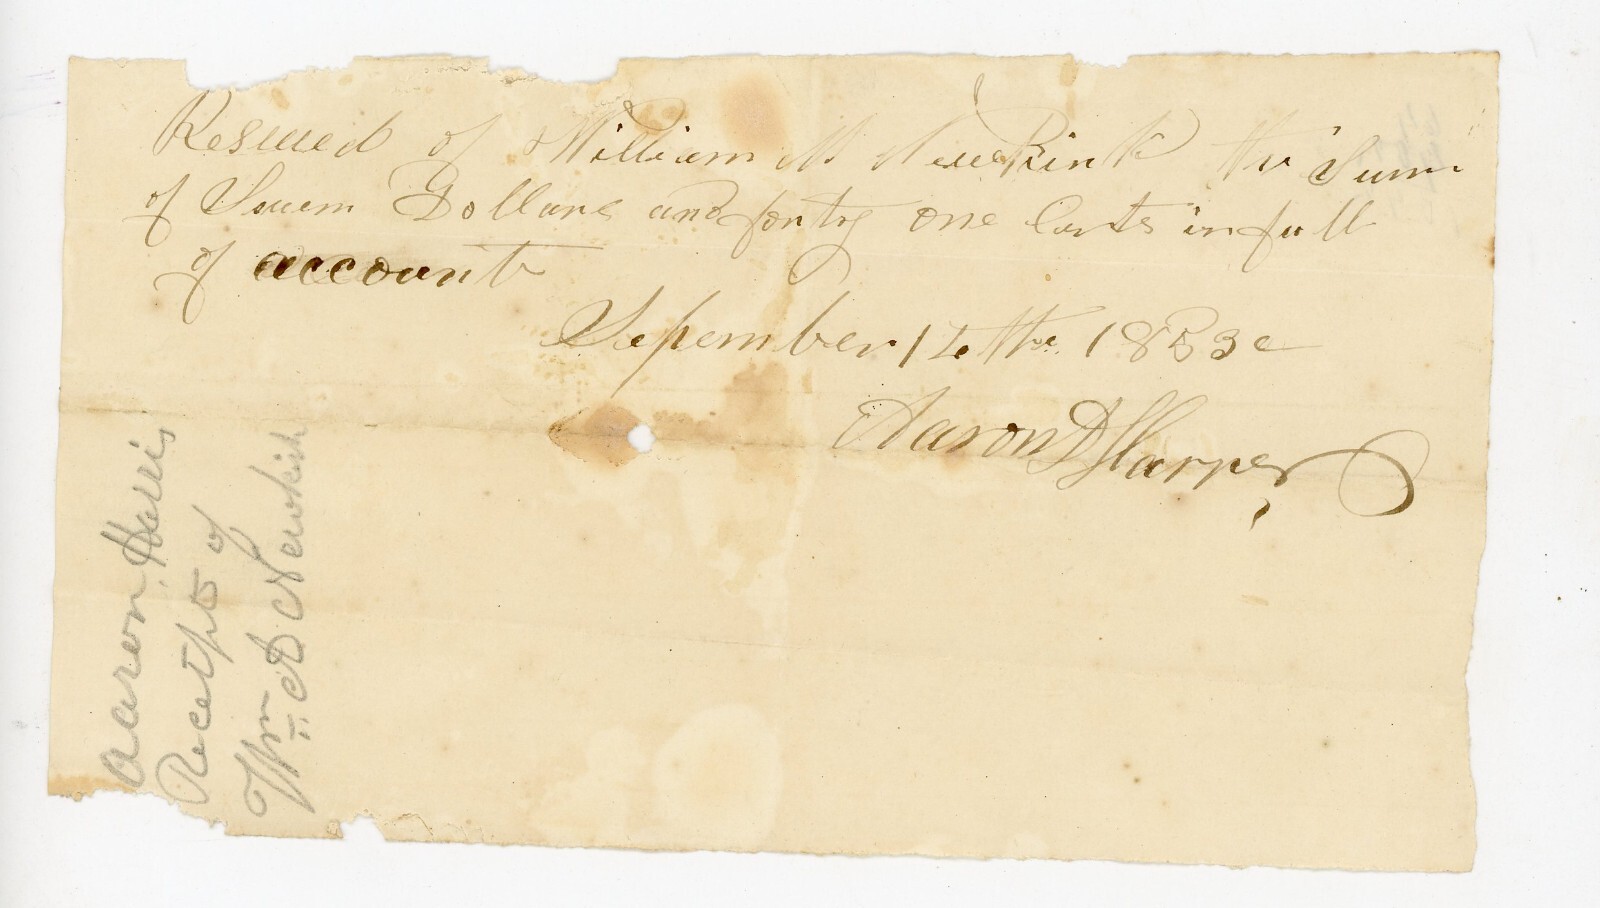 Reseued of William M NeueKirk the Sum
of Seuem Dollars and forty one Cents in full
of account
Sepember 1 the 1853
Aaron D Harper
Aaron Harris
Receipt of
Wm A Newkirk